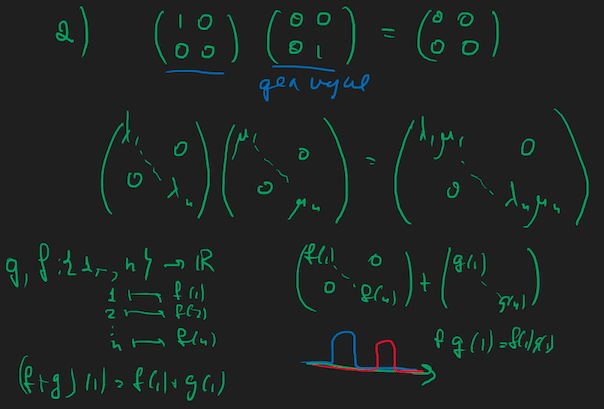 2) (1 0 0 0) (0 0 0 1) = (0 0 0 0)
(λ₁ 0 0 λₙ) (μ₁ 0 0 μₙ) = (λ₁μ₁ 0 0 λₙμₙ)
g, f: {1, -, n} → ℝ
1 ↦ f(1)
2 ↦ f(2)
⋮
n ↦ f(n)
(f+g)(1) = f(1)+g(1)
(f(1) 0 0 f(n)) + (g(1) g(n))
f g (1) = f(1)g(1)